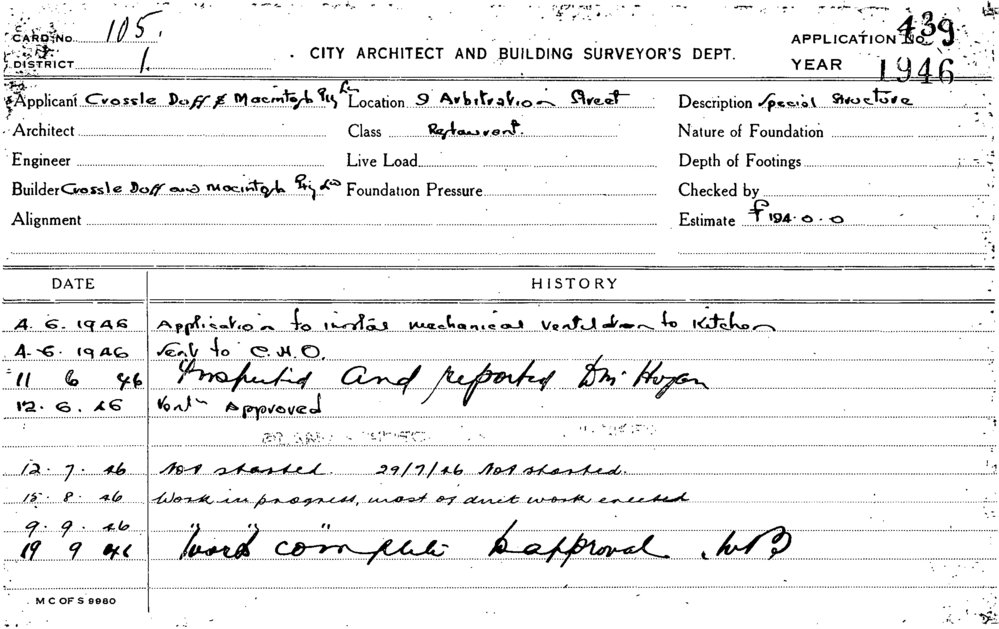 CARD No. 105.
DISTRICT 1.
CITY ARCHITECT AND BUILDING SURVEYOR'S DEPT.
APPLICATION No. 439
YEAR 1946
Applicant Crossle Duff & Macintosh Pty Ld Location 9 Arbitration Street Description Special Structure
Architect Class Restaurant. Nature of Foundation
Engineer Live Load Depth of Footings
Builder Crossle Duff and Macintosh Pty Ld Foundation Pressure Checked by
Alignment Estimate £194.0.0
DATE HISTORY
4. 6. 1946 Application to install mechanical ventilation to Kitchen
4. 6. 1946 Sent to C.H.O.
11 6 46 Inspected and reported Hogan
12. 6. 46 Vent Approved
12. 7. 46 Not started. 29/7/46 Not started.
15. 8. 46 Work in progress, most of duct work erected
9. 9. 46 " " "
19 9 46 Work complete approval
M C OF S 9980